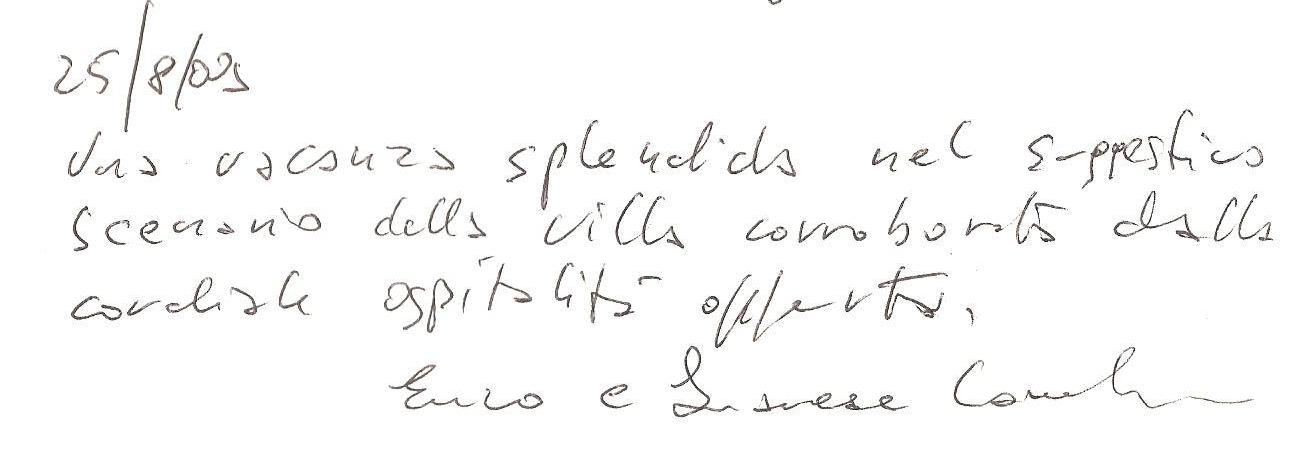 25/8/09
Una vacanza splendida nel suggestivo
scenario della villa corroborata dalla
cordiale ospitalità offerta.
Enzo e